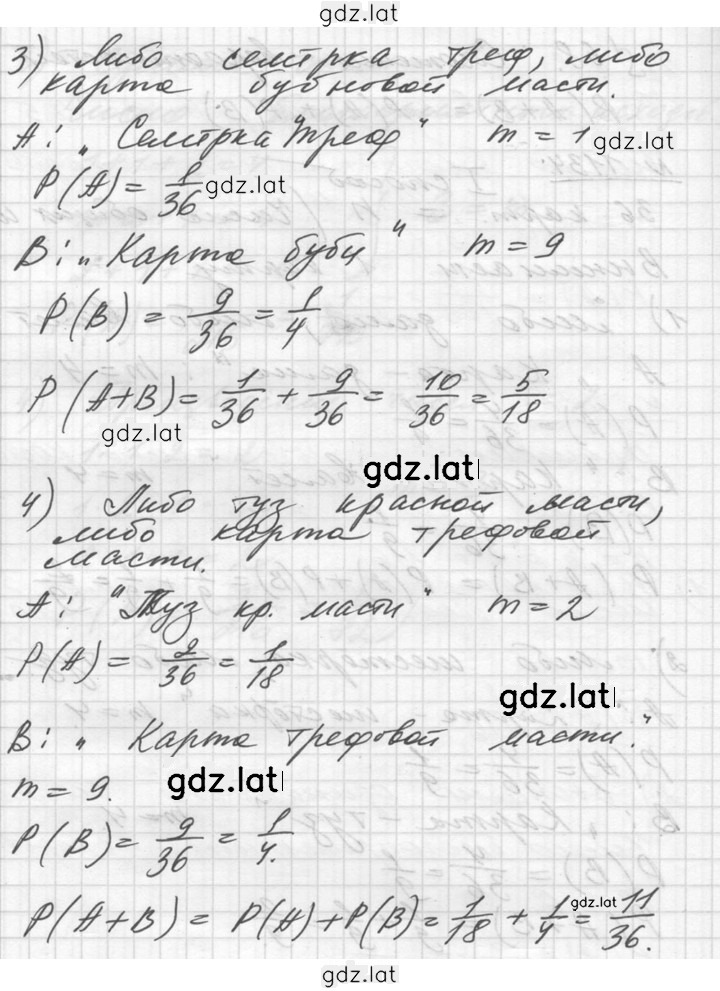 gdz.lat
3) Либо семёрка треф, либо
карта бубновой масти.
A: „Семёрка "треф" m = 1 gdz.lat
P(A) = 1/36 gdz.lat
B: „Карта буби" m = 9
P(B) = 9/36 = 1/4
P(A+B) = 1/36 + 9/36 = 10/36 = 5/18
gdz.lat
gdz.lat
4) Либо туз красной масти,
либо карта трефовой
масти.
A: "Туз кр. масти" m = 2
P(A) = 2/36 = 1/18
gdz.lat
B: „Карта трефовой масти."
m = 9. gdz.lat
P(B) = 9/36 = 1/4.
P(A+B) = P(A) + P(B) = 1/18 + 1/4 = 11/36.
gdz.lat
gdz.lat